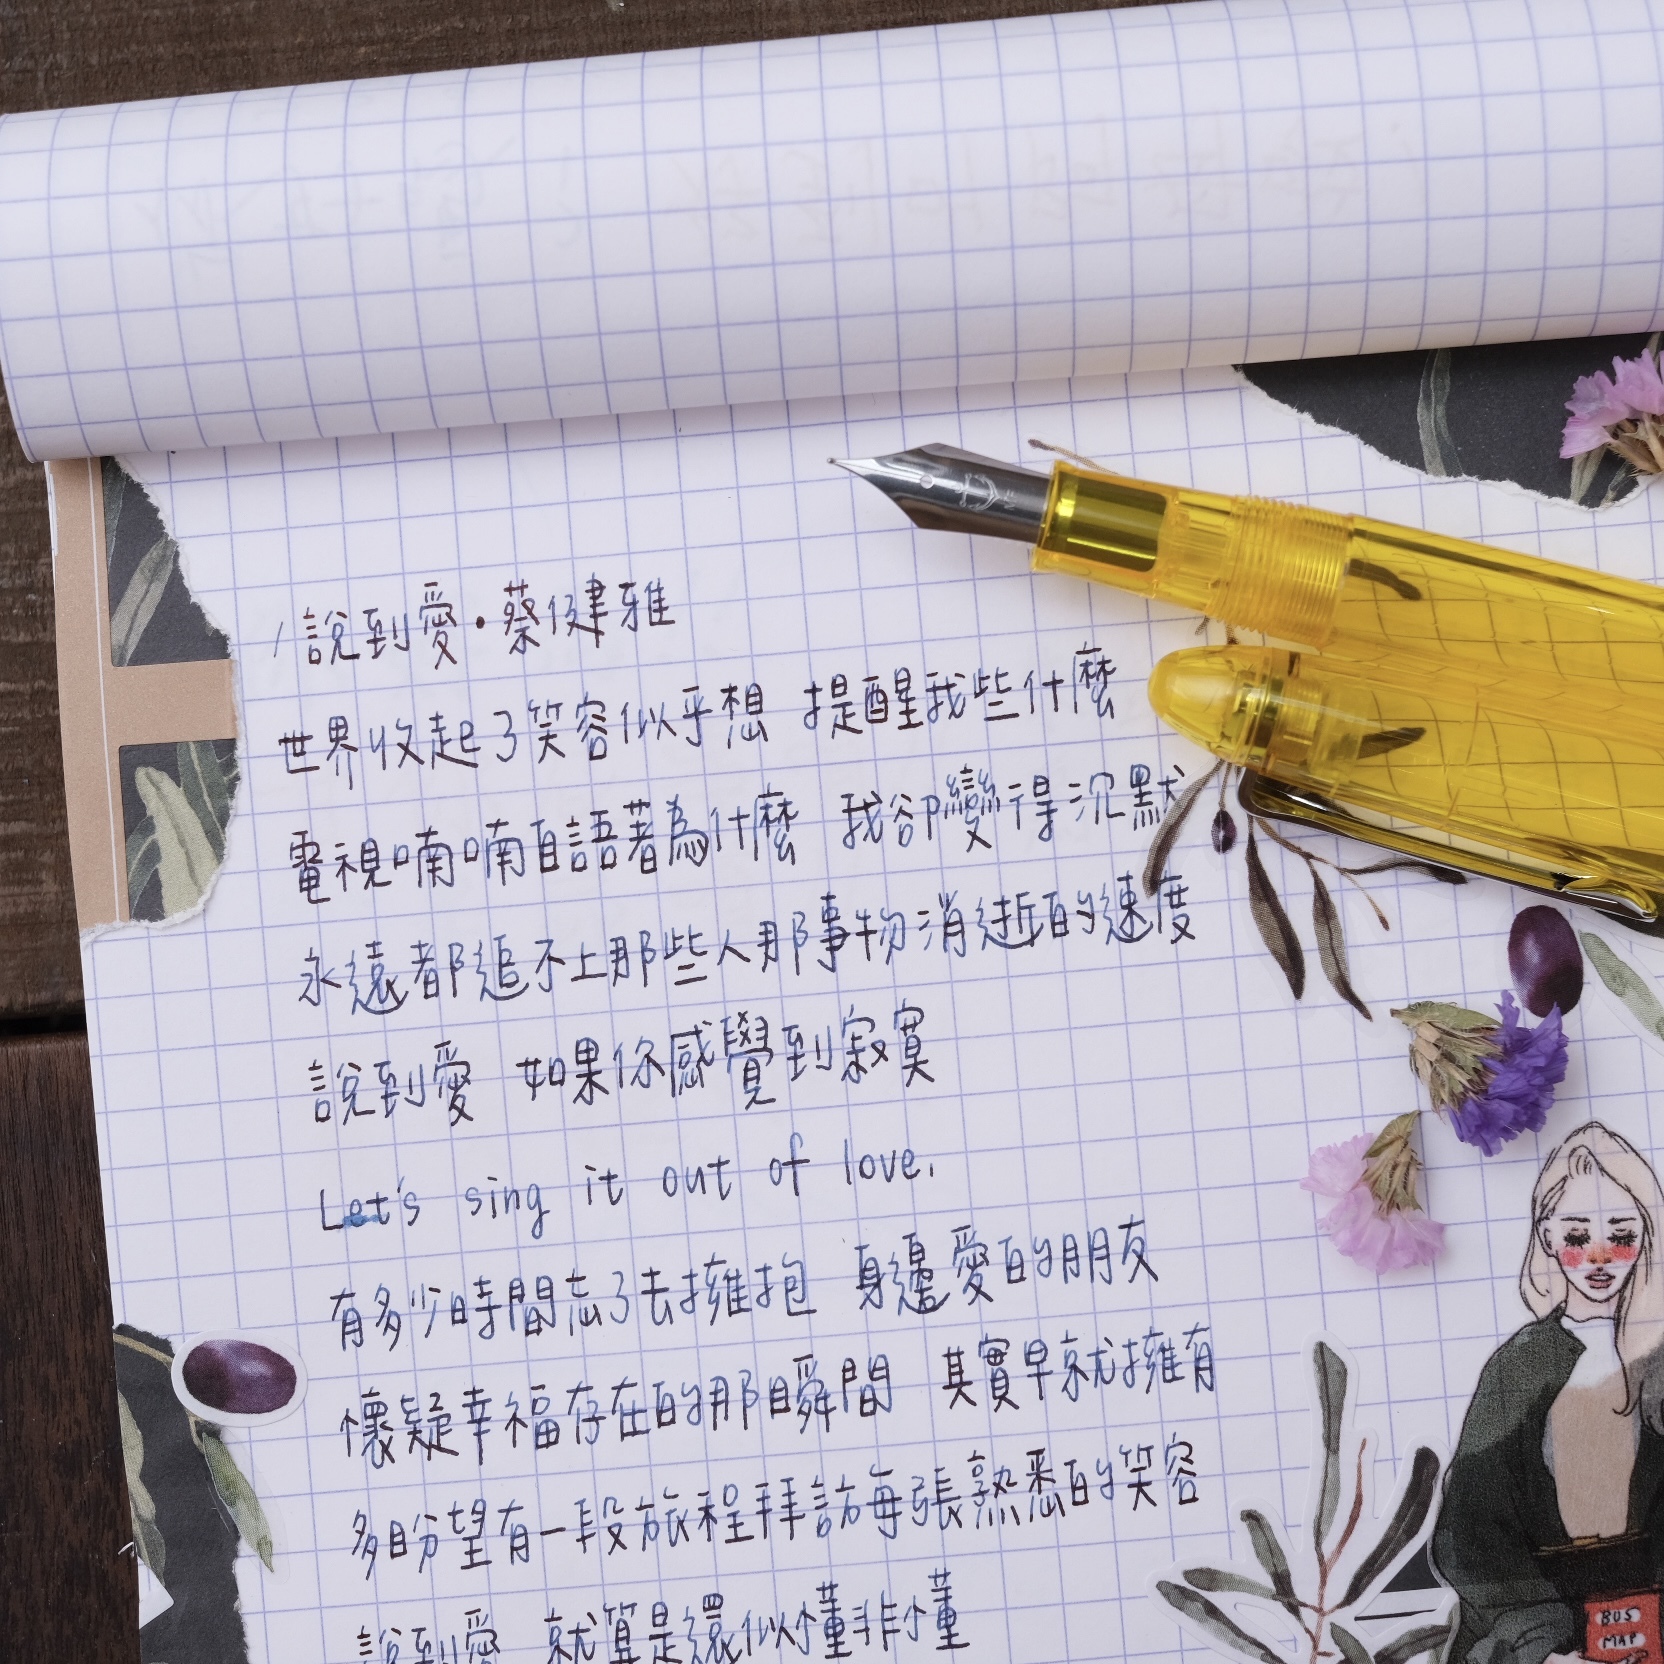 /說到愛·蔡健雅
世界收起了笑容似乎想 提醒我些什麼
電視喃喃自語著為什麼 我卻變得沉默
永遠都追不上那些人那事物消逝的速度
說到愛 如果你感覺到寂寞
Let's sing it out of love.
有多少時間忘了去擁抱 身邊愛的朋友
懷疑幸福存在的那瞬間 其實早就擁有
多盼望有一段旅程拜訪每張熟悉的笑容
說到愛 就算是還似懂非懂
BUS
MAP